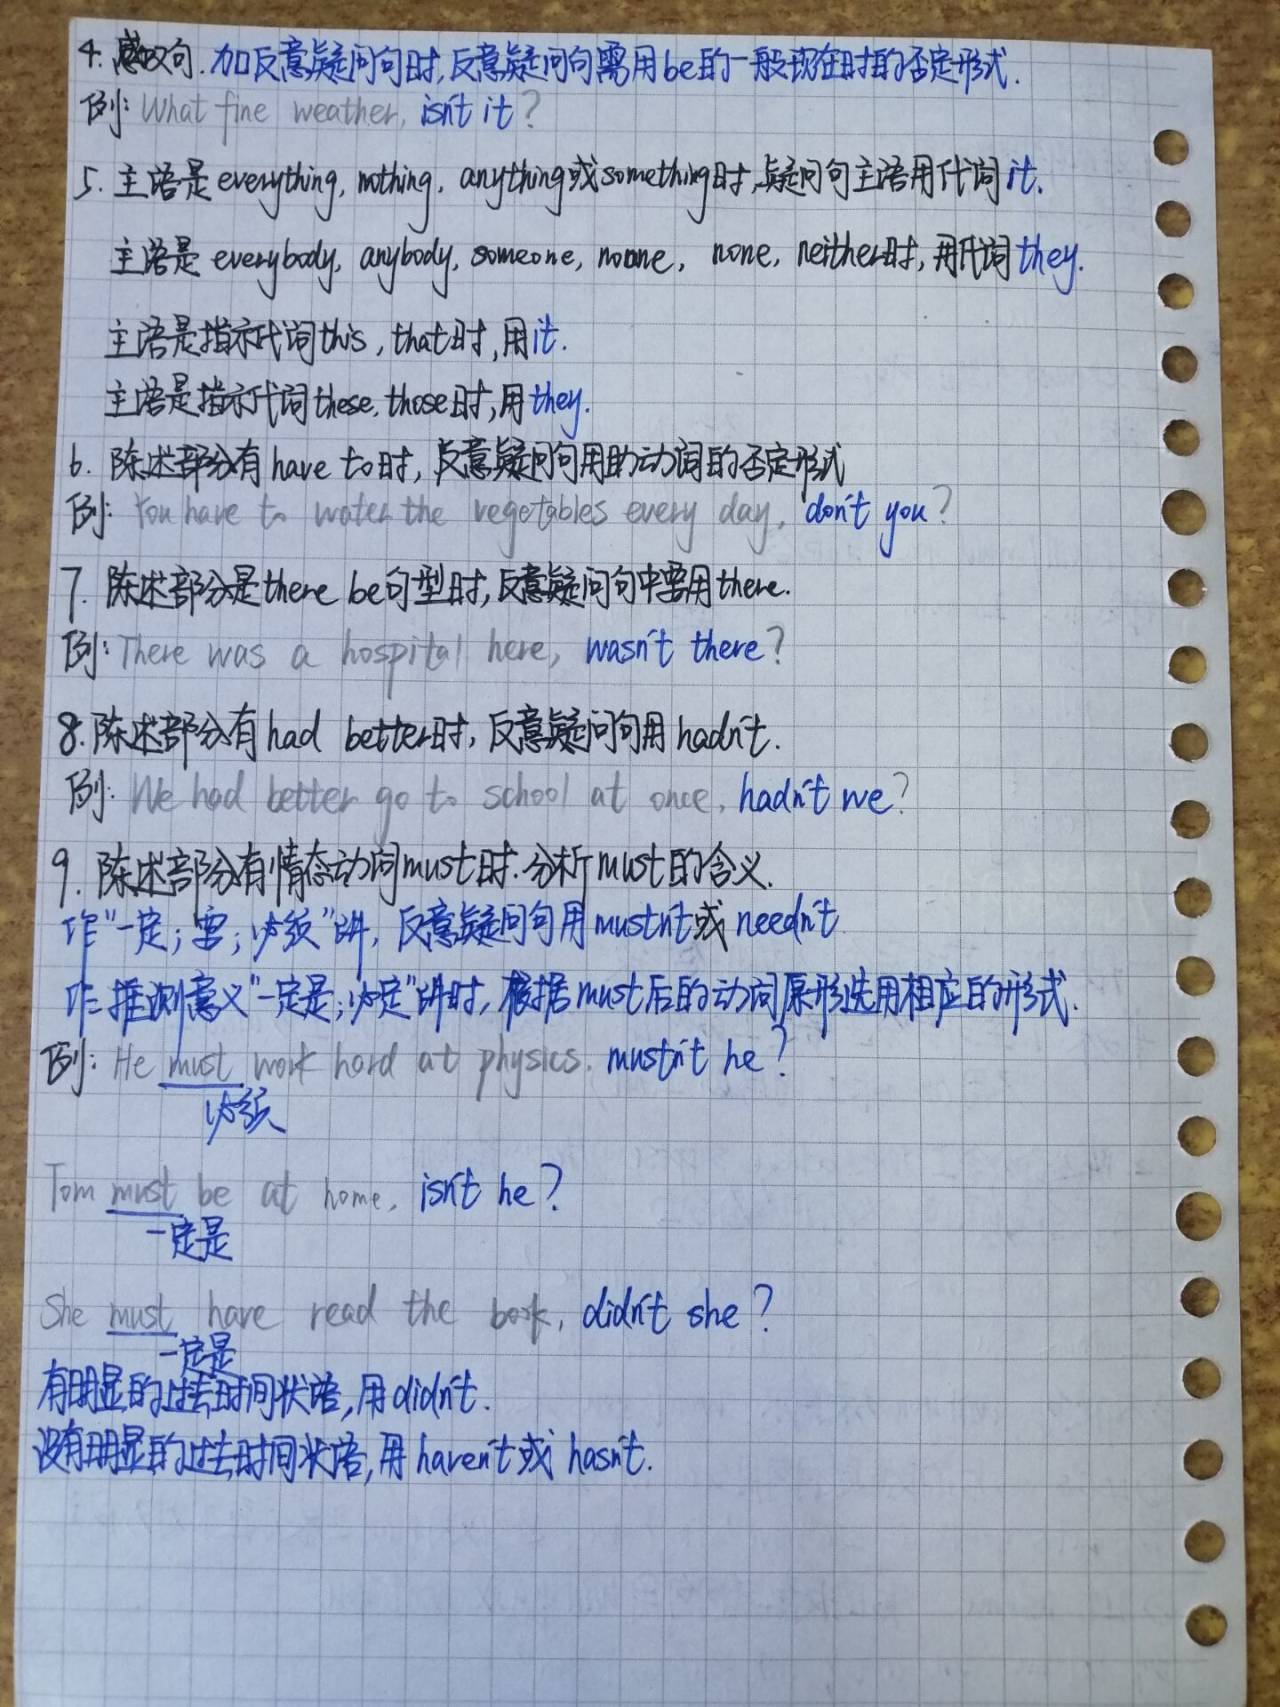 4. 感叹句.加反意疑问句时,反意疑问句需用be的一般现在时的否定形式.
例: What fine weather, isn't it?
5. 主语是everything, nothing, anything或something时,疑问句主语用代词it.
主语是 everybody, anybody, someone, noone, none, neither时, 用代词they.
主语是指示代词this, that时,用it.
主语是指示代词these, those时,用they.
6. 陈述部分有have to时, 反意疑问句用助动词的否定形式
例: You have to water the vegetables every day, don't you?
7. 陈述部分是there be句型时,反意疑问句中要用there.
例: There was a hospital here, wasn't there?
8. 陈述部分有had better时, 反意疑问句用hadn't.
例: We had better go to school at once, hadn't we?
9. 陈述部分有情态动词must时.分析must的含义.
作"一定;要;必须"讲, 反意疑问句用mustn't或needn't
作推测意义"一定是;必定"讲时, 根据must后的动词原形选用相应的形式.
例: He must work hard at physics. mustn't he?
必须
Tom must be at home, isn't he?
一定是
She must have read the book, didn't she?
一定是
有明显的过去时间状语,用didn't.
没有明显的过去时间状语,用haven't或hasn't.